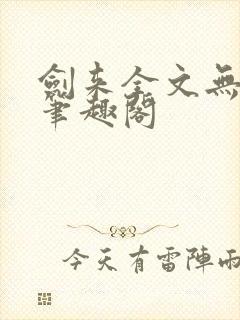 劍来全文無
筆趣閣
今天有雷陣雨